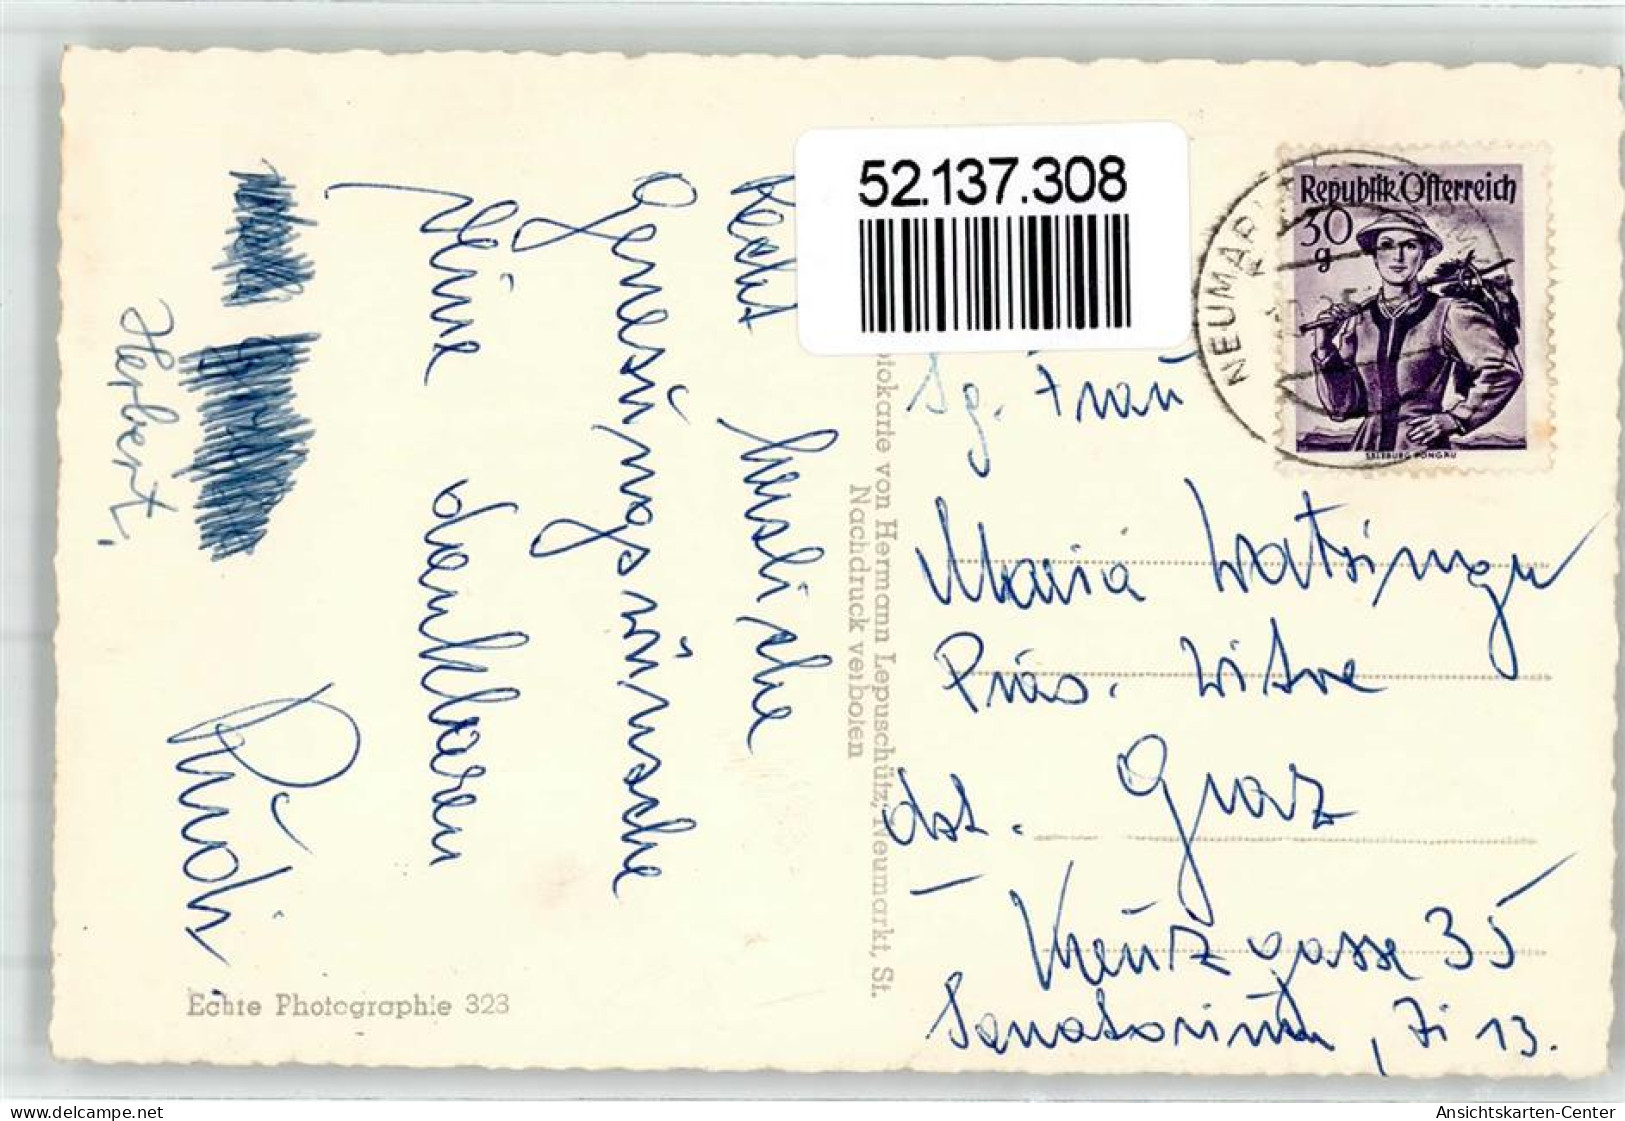 52.137.308
Republik Österreich
30
g
SALZBURG PONGAU
NEUMARKT
Recht herzliche
Genesungswünsche
Deine dankbaren
Rudi.
Herbert.
Sg. Frau
Maria Watzinger
Präs. Witwe
dzt. Graz
Kreuzgasse 35
Sanatorium, Zi 13.
otokarte von Hermann Lepuschütz, Neumarkt, St.
Nachdruck verboten
Echte Photographie 323
delcampe.net
Ansichtskarten-Center